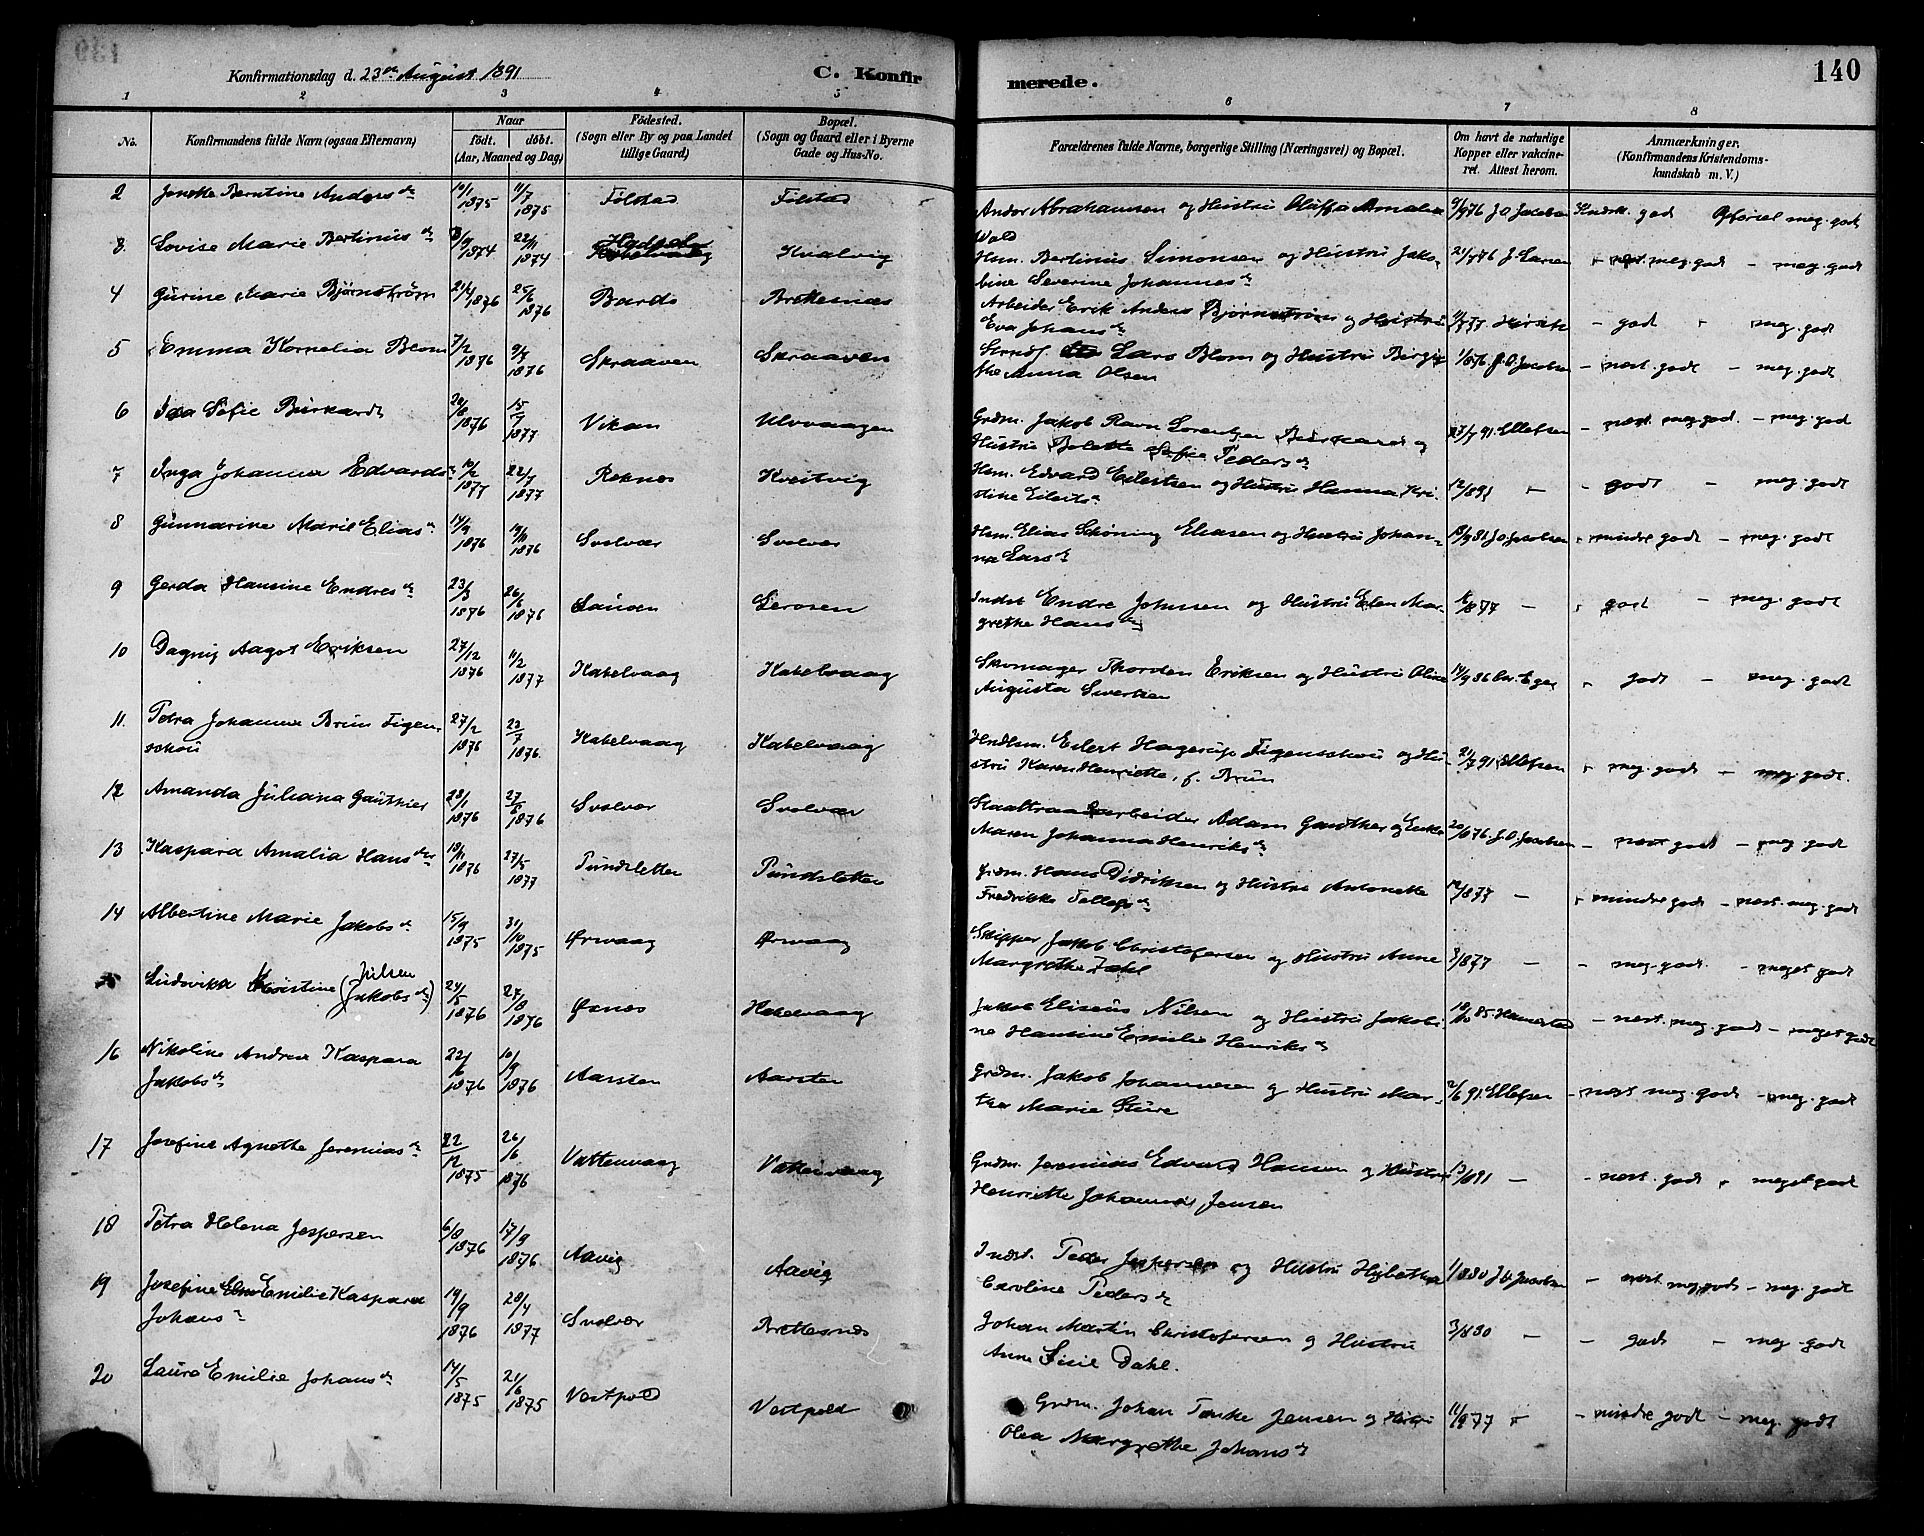 Konfirmationsdag d. 23de August 1891
C. Konfirmerede.
140
1 2 3 4 5 6 7 8
No.
Konfirmandens fulde Navn (ogsaa Efternavn)
Naar
født. døbt.
(Aar, Maaned og Dag)
Fødested.
(Sogn eller By og paa Landet
tillige Gaard)
Bopæl.
(Sogn og Gaard eller i Byerne
Gade og Hus-No.
Forældrenes fulde Navne, borgerlige Stilling (Næringsvei) og Bopæl.
Om havt de naturlige
Kopper eller vakcine-
ret. Attest herom.
Anmærkninger.
(Konfirmandens Kristendoms-
kundskab m. V.)
2 Jenske Berntine Andersdr 10/1 1875 11/7 1875 Følstad Følstad Andor Abrahamsen og Hustru Oluffa Amalia Wold 9/976 J.O. Jacobsen Kndsk. god Opførsel meg. god
3. Lovise Marie Bertinusdr 1874 22/11 1874 Hadsel Kvalvig Hsm. Bertinus Simonsen og Hustru Jako-
bine Severine Johannesdr J. Larsen meg. god - meg. god
4 Gurine Marie Bjørnstrøm 21/4 1876 25/6 1876 Bards Brettesnæs Arbeider Erik Anders Bjørnstrøm og Hustru
Eva Johansdr - god meg. god
5 Emma Kornelia Blom 7/2 1876 9/7 1876 Skraaven Skraaven Lars Blom og Hustru Birgit-
the Anna Olsen 1/876 J.O. Jacobsen - nest. godt - meg. godt
6 Ida Sofie Burkardt 20/8 1876 15/9 1877 Vikan Ulvvaagen Grdm. Jakob Ravn Lorentzen og
Hustru Bolette Sofie Pedersdr 27/7 91. Ellefsen - nest meg. god. - meg. god
7 Inga Johanna Edvardsdr 10/2 1877 22/7 1877 Reknes Kveitvig Hsm. Edvard Eilertsen og Hustru Hanna Kri-
stine Eilertsdr 12/891 - - godt - meg. godt
8 Gunnarine Marie Eliasdr 14/9 1876 19/11 1876 Svolvær Svolvær Hsm. Elias Skøning Eliasen og Hustru Johan-
na Larsdr J.O. Jacobsen mindre godt - meg. godt
9 Gerda Hansine Endresdr 23/3 1876 26/6 1876 Sauøen Gerosen Indst Endre Johnsen og Hustru Elen Mar-
grethe Hansdr /877 - godt - meg. godt
10 Dagny Aagot Eriksen 27/12 1876 11/2 1877 Kabelvaag Kabelvaag Skomager Thorden Eriksen og Hustru Olina
Augusta Sivertsen 14/9 86 godt - meg. godt
11. Petra Johanna Brun Figen-
schou 27/2 1876 23/7 1876. Kabelvaag Kabelvaag Hndlsm. Eilert Hagerup Figenschou og Hu-
stru Karen Henriette, f. Brun 21/791 Ellefsen meg. godt - meg. godt.
12 Amanda Juliana Gauthier 28/1 1876 27/6 1876 Svolvær Svolvær Adam Gauthier og Enke
Maren Johanna Henriksdr 20/876. J.O. Jacobsen - nest godt - meg godt
13 Kaspara Amalia Hansdtr 18/11 1876 27/5 1877 Pundsletten Pundsletten Grdm. Hans Didriksen og Hustru Antonette
Fredrikke Tollefsdr 12/877 - mindre godt - nest. meg. godt
14 Albertine Marie Jakobsdr 15/9 1875 31/10 1875 Ørsvaag Ørsvaag Skipper Jakob Christofersen og Hustru Anne
Margrethe Dahl 3/877 - - meg. godt. - meget godt
Ludvikka Kristine (Nilsen
Jakobsdr) 24/5 1876 27/8 1876 Øsnes Kabelvaag Jakob Eliseus Nilsen og Hustru Jakobi-
ne Hansine Emilie Henriksdr 18/10 85 - nest. meg. godt - meget godt
16 Nikoline Andrea Kaspara
Jakobsdr 22/6 1876 10/9 1876 Aarsten Aarsten Grdm. Jakob Johannesen og Hustru Mar-
tha Marie Sture 2/6 91. Ellefsen - nest meg. godt - meg. godt
17 Josefine Agnethe Jeremiasdr 22/12 1875 26/6 1876 Vattenvaag Vattenvaag Grdm. Jeremias Edvard Hansen og Hustru
Henriette Johanna Jensen 13/891 - - nest. godt meget godt
18 Petra Helena Jespersen 6/8 1876 17/9 1876 Aavig Aavig Indst. Peder Jespersen og Hustru
Caroline Pedersdr 1/880 J.O. Jacobsen - nest meg. godt - meg. godt
19 Josefine Emilie Kaspara
Johansdr 19/9 1876 28/4 1877 Svolvær Brettesnæs Johan Martin Christofersen og Hustru
Anne Sisil Dahl. 3/880 - - godt - meg. godt
20 Laura Emilie Johansdr 14/5 1875 21/6 1875 Vestpold Vestpold Grdm. Johan Tenke Jensen og Hustru
Olea Margrethe Johansdr 11/977 - mindre godt - meg. godt